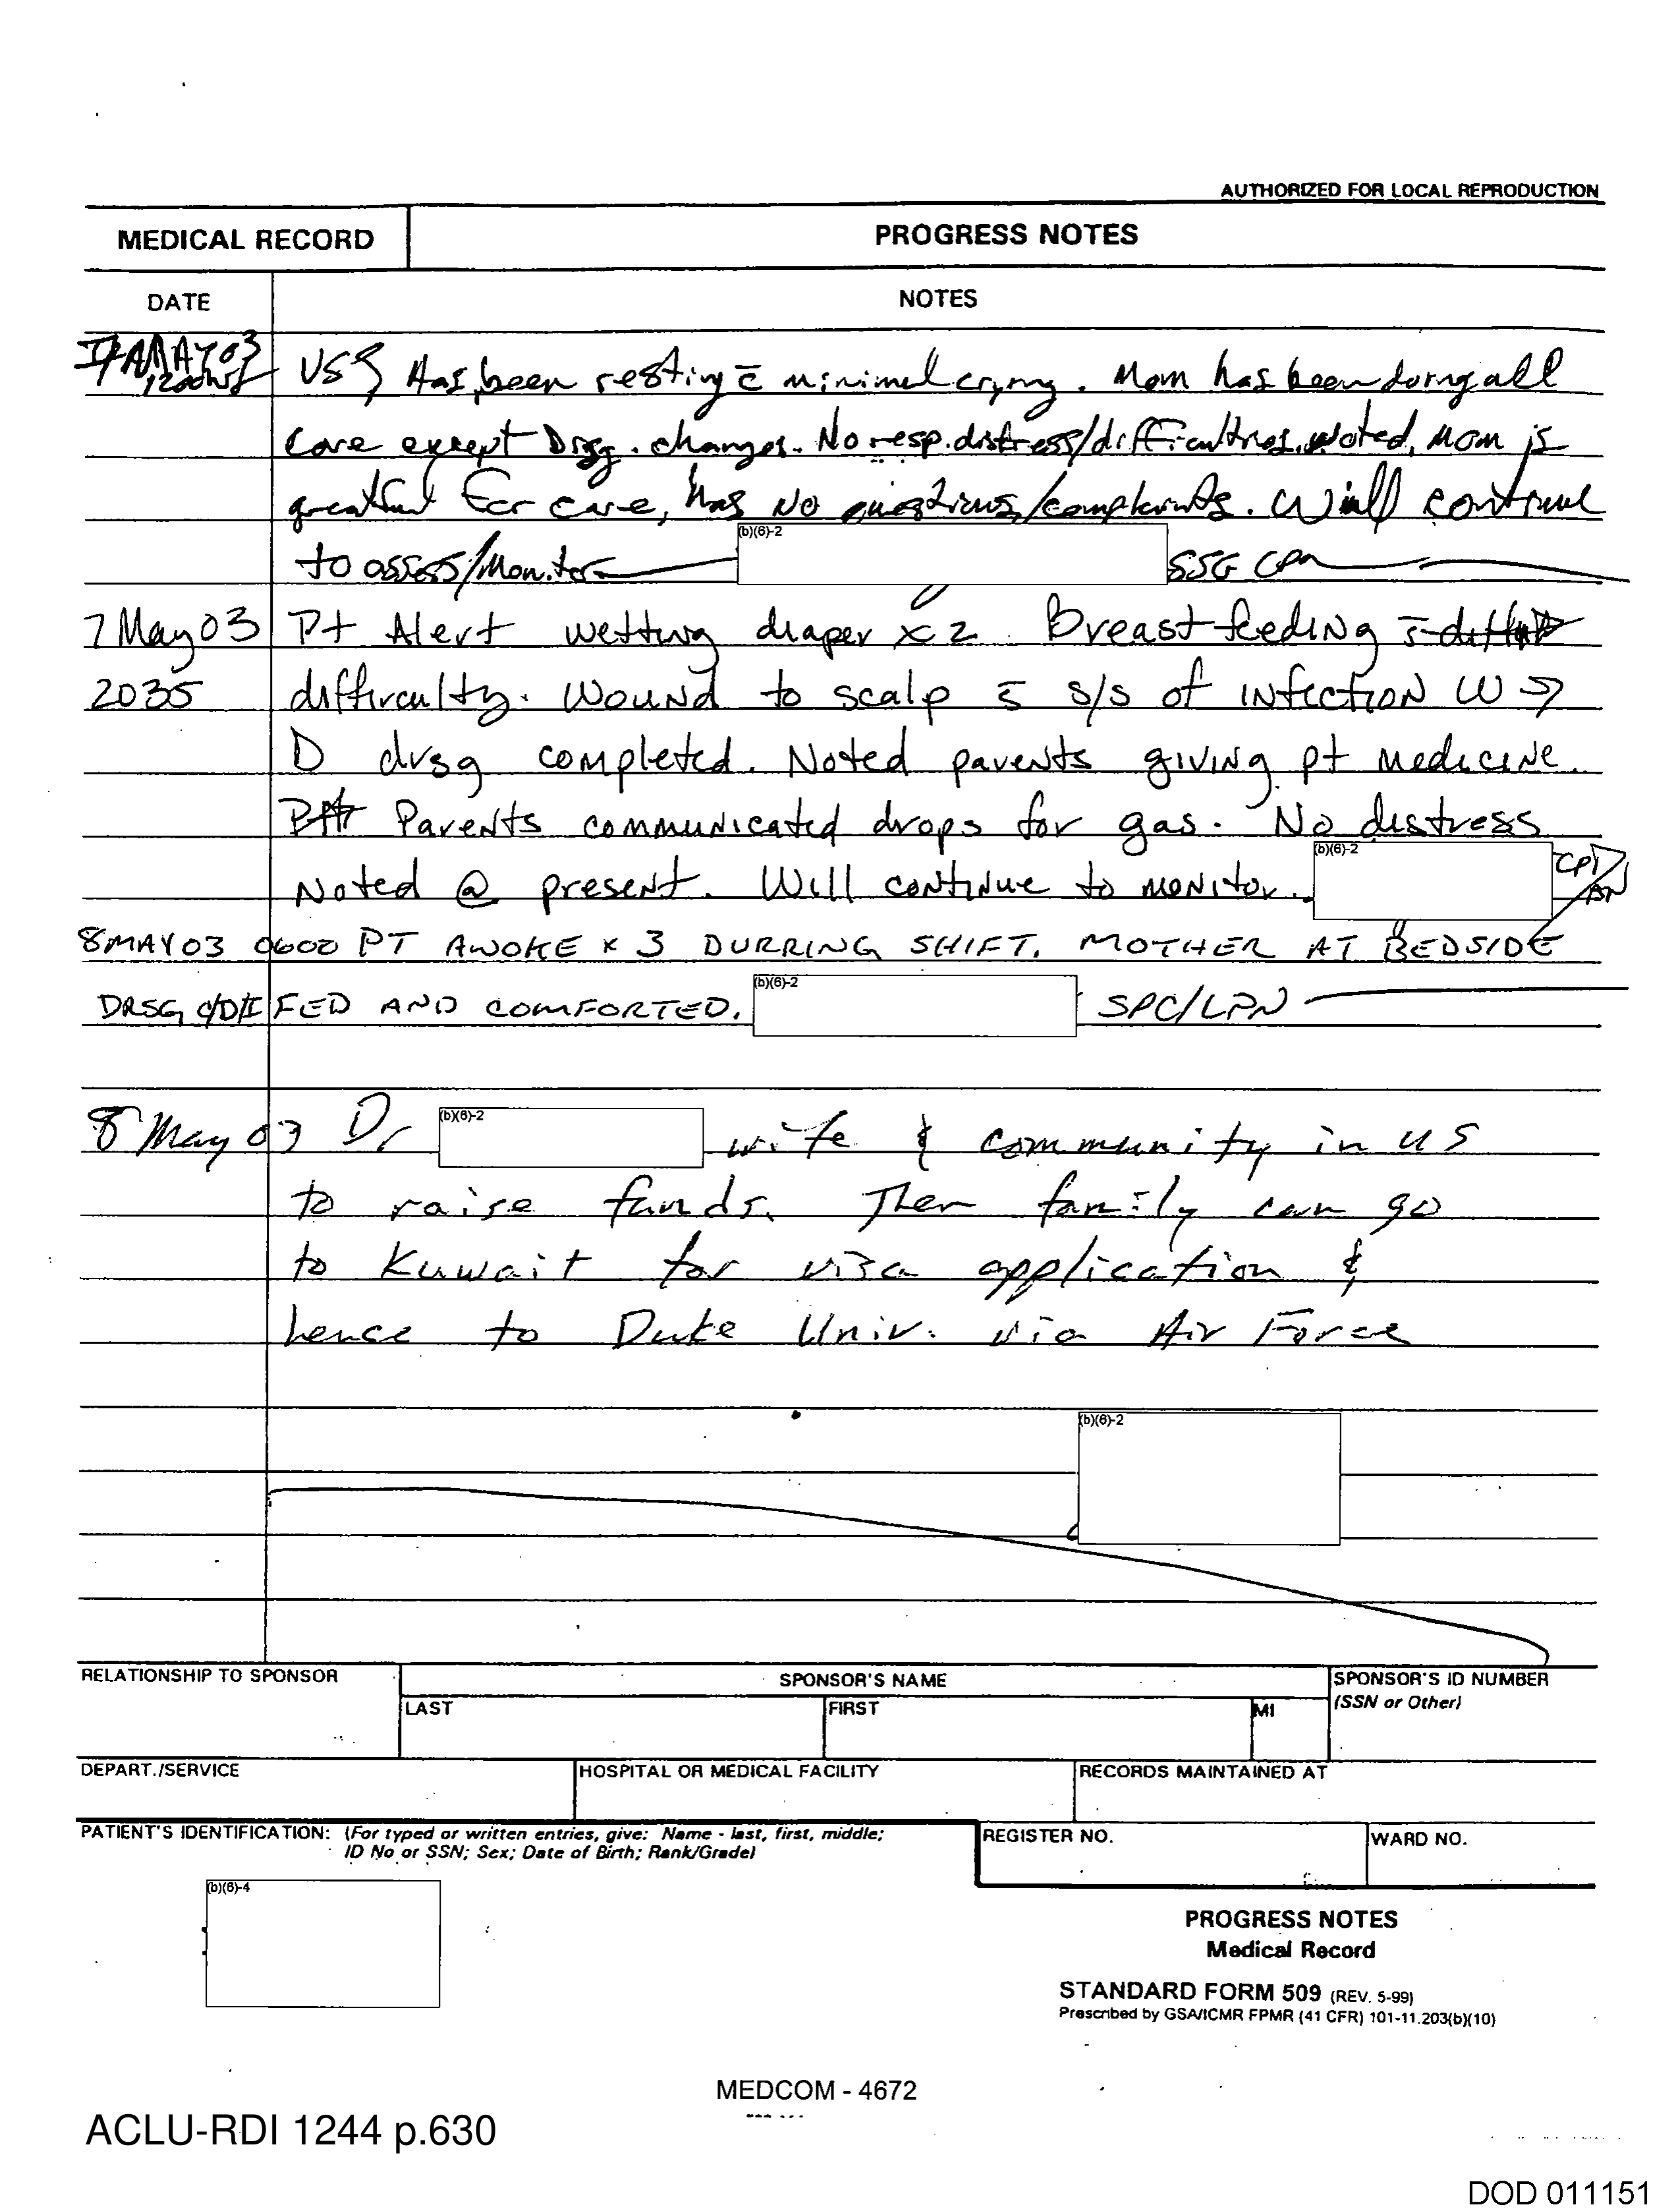 AUTHORIZED FOR LOCAL REPRODUCTION
MEDICAL RECORD PROGRESS NOTES
DATE NOTES
MAY 03 Has been resting c̄ minimal crying. Mom has been doing all
1200hrs
care except Drsg. changes. No resp. distress/difficulties noted. Mom is
grateful for care, has No questions/complaints. Will continue
to assess/Monitor (b)(6)-2 SSG
7 May 03 Pt Alert wetting diaper x 2. Breastfeeding s̄
2035 difficulty. Wound to scalp s̄ s/s of infection W →
D drsg completed. Noted parents giving pt medicine.
Parents communicated drops for gas. No distress
Noted @ present. Will continue to monitor. (b)(6)-2 CPT/AN
8 MAY 03 0600 PT AWOKE x 3 DURRING SHIFT. MOTHER AT BEDSIDE
DRSG C/D/I FED AND COMFORTED. (b)(6)-2 SPC/LPN
8 May 03 Dr (b)(6)-2 wife & community in US
to raise funds. Then family can go
to Kuwait for visa application &
hence to Duke Univ. via Air Force
(b)(6)-2
RELATIONSHIP TO SPONSOR SPONSOR'S NAME SPONSOR'S ID NUMBER
LAST FIRST MI (SSN or Other)
DEPART./SERVICE HOSPITAL OR MEDICAL FACILITY RECORDS MAINTAINED AT
PATIENT'S IDENTIFICATION: (For typed or written entries, give: Name - last, first, middle; REGISTER NO. WARD NO.
ID No or SSN; Sex; Date of Birth; Rank/Grade)
(b)(6)-4
PROGRESS NOTES
Medical Record
STANDARD FORM 509 (REV. 5-99)
Prescribed by GSA/ICMR FPMR (41 CFR) 101-11.203(b)(10)
MEDCOM - 4672
ACLU-RDI 1244 p.630
DOD 011151